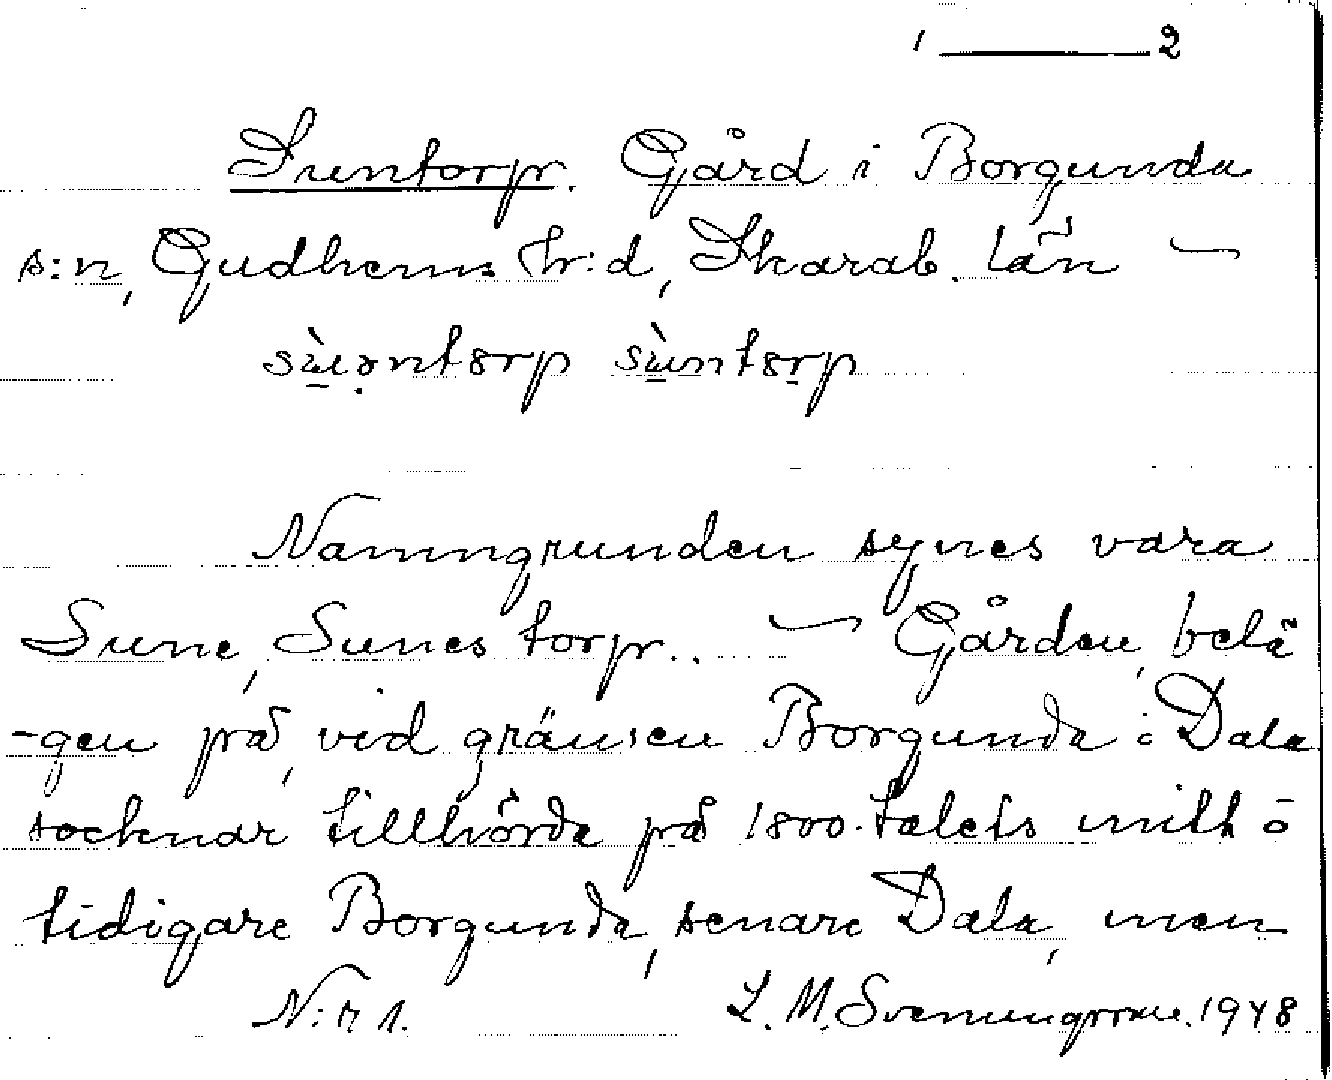 1 — 2
Suntorp. Gård i Borgunda
s:n, Gudhems hr:d, Skarab. län —
sùəntorp sùntorp
Namngrunden synes vara
Sune, Sunes torp.. — Gården, belä
-gen på, vid gränsen Borgunda o Dala
socknar tillhörde på 1800-talets mitt o
tidigare Borgunda, senare Dala, men
N:r 1. L. M. Svenungsson. 1948